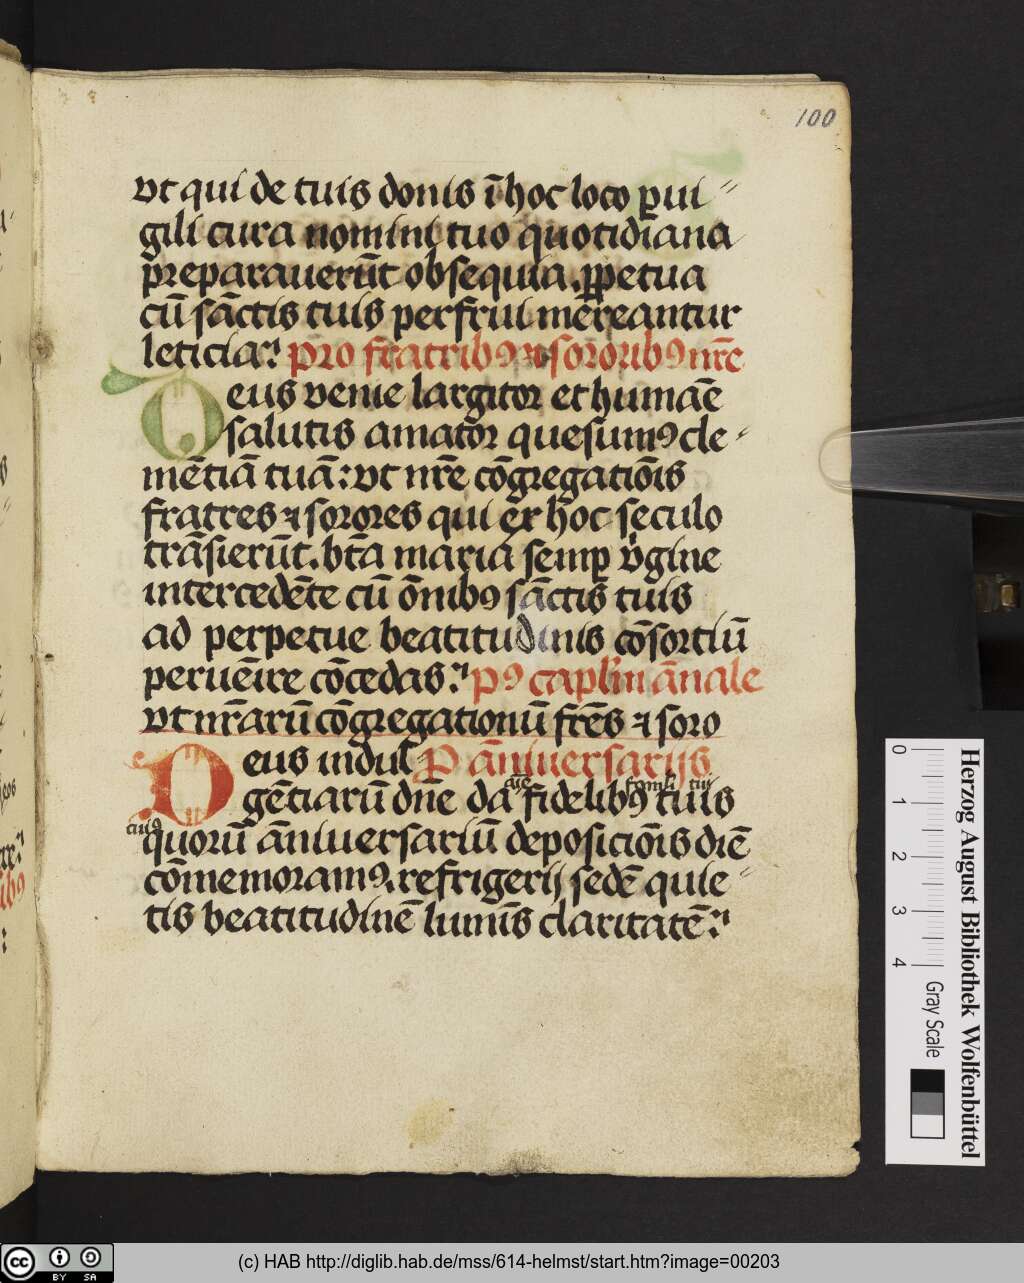 100
vt qui de tuis donis ī hoc loco ꝑui〃
gili cura nomini tuo quotidiana
p̄reparauerūt obsequia. ꝑpetua
cū sāctis tuis perfrui mēreantur
leticia: p̄ro fratribꝯ ⁊ sororibꝯ nr̄e
Deus venie largitor et humāe
salutis amator quesumꝯ cle〃
mētiā tuā: vt nr̄e cōgregatiōis
fratres ⁊ sorores qui ex hoc seculo
trāsierūt. btā maria semꝑ v̓gine
intercedēte cū ōnibꝯ sāctis tuis
ad perpetue beatitudinis cōsortiū
peruēire cōcedas: pꝯ caplm̄ ānale
vt nr̄arū cōgregationū frēs ⁊ soro
Deus indul P āniuersarijs
aīe famli tui
gētiarū dn̄e da fidelibꝯ tuis
cuiꝯ
quorū āniuersariū deposiciōis diē
cōmemoramꝯ. refrigerij sedē quie〃
tis beatitudinē lumīs claritatē:
Herzog August Bibliothek Wolfenbüttel
0 1 2 3 4 Gray Scale
cc BY SA
(c) HAB http://diglib.hab.de/mss/614-helmst/start.htm?image=00203